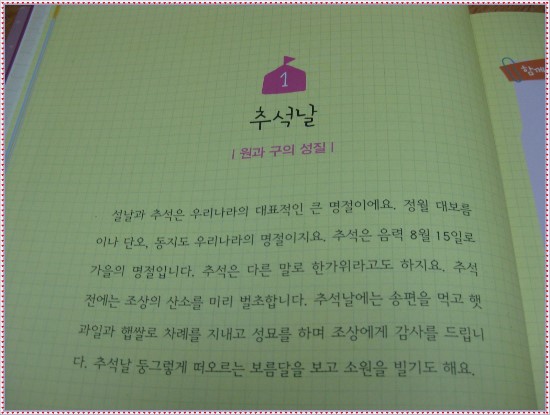 1
추석날
| 원과 구의 성질 |
함께
설날과 추석은 우리나라의 대표적인 큰 명절이에요. 정월 대보름
이나 단오, 동지도 우리나라의 명절이지요. 추석은 음력 8월 15일로
가을의 명절입니다. 추석은 다른 말로 한가위라고도 하지요. 추석
전에는 조상의 산소를 미리 벌초합니다. 추석날에는 송편을 먹고 햇
과일과 햅쌀로 차례를 지내고 성묘를 하며 조상에게 감사를 드립니
다. 추석날 둥그렇게 떠오르는 보름달을 보고 소원을 빌기도 해요.